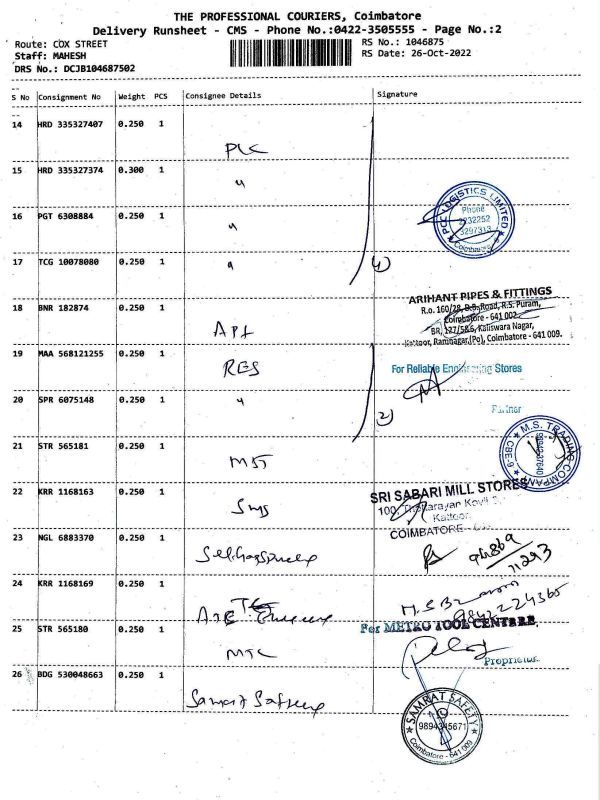 THE PROFESSIONAL COURIERS, Coimbatore
Delivery Runsheet - CMS - Phone No.:0422-3505555 - Page No.:2
Route: COX STREET
RS No.: 1046875
Staff: MAHESH
RS Date: 26-Oct-2022
DRS No.: DCJB104687502
S No Consignment No Weight PCS Consignee Details Signature
14 HRD 335327407 0.250 1
PLC
15 HRD 335327374 0.300 1
"
16 PGT 6308884 0.250 1
"
PCC LOGISTICS LIMITED
Phone
2232252
3297313
Coimbatore
17 TCG 10078080 0.250 1
"
4)
ARIHANT PIPES & FITTINGS
R.o. 160/28, D.B.Road, R.S. Puram,
Coimbatore - 641 002
BR, 127/5&6, Kaliswara Nagar,
Kattoor, Ramnagar,(Po), Coimbatore - 641 009.
18 BNR 182874 0.250 1
APF
19 MAA 568121255 0.250 1
RES
For Reliable Engineering Stores
20 SPR 6075148 0.250 1
"
2)
Partner
21 STR 565181 0.250 1
MST
M.S. TRADING COMPANY
CBE-9
22 KRR 1168163 0.250 1
SMS
SRI SABARI MILL STORES
Kattoor
COIMBATORE
23 NGL 6883370 0.250 1
94869
71293
24 KRR 1168169 0.250 1
9842224365
25 STR 565180 0.250 1
MTC
For METRO TOOL CENTRE
Proprietor
26 BDG 530048663 0.250 1
SAMRAT SAFETY
9894345671
Coimbatore - 641 009